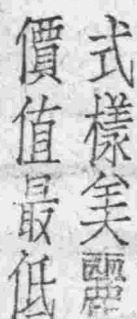 式樣美麗
價值最低